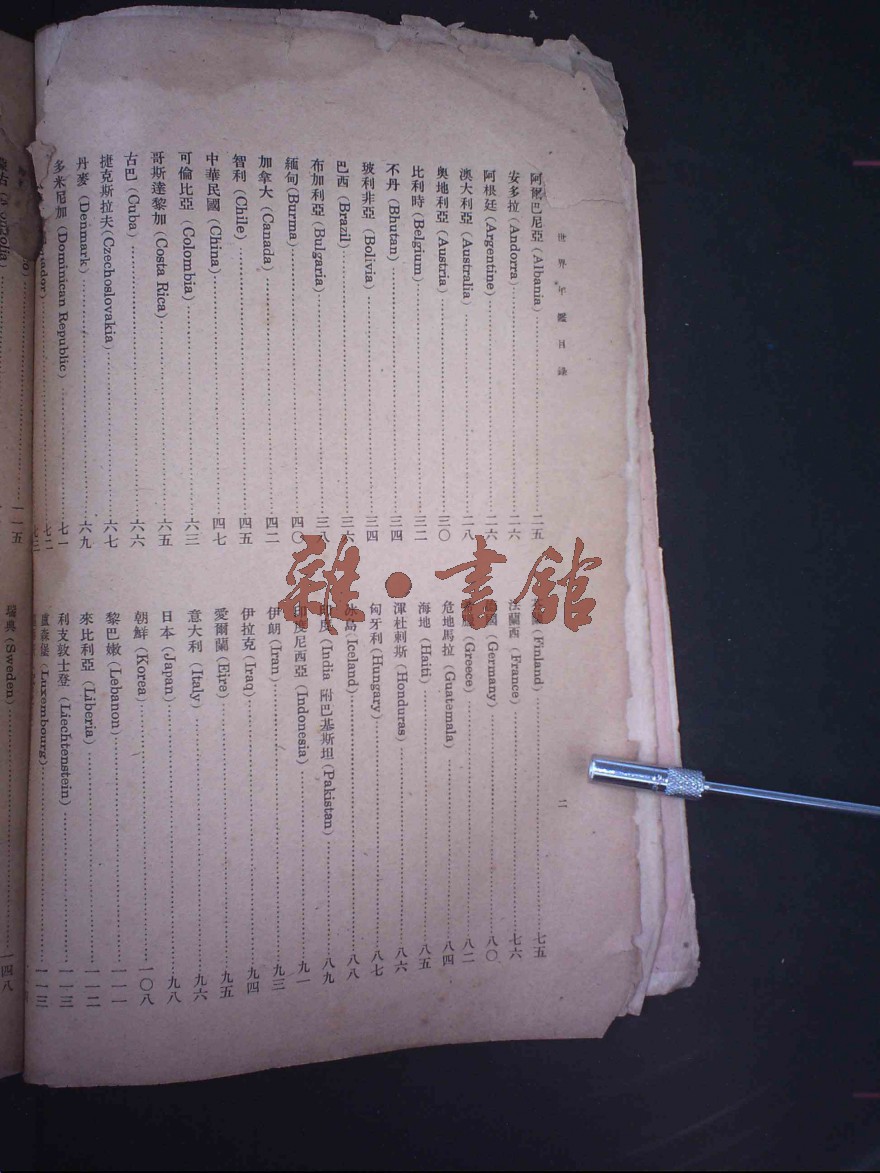 世界年鑑目錄
二
阿爾巴尼亞 (Albania)……二五
安多拉 (Andorra)……二六
阿根廷 (Argentine)……二六
澳大利亞 (Australia)……二八
奧地利亞 (Austria)……三〇
比利時 (Belgium)……三二
不丹 (Bhutan)……三四
玻利非亞 (Bolivia)……三四
巴西 (Brazil)……三六
布加利亞 (Bulgaria)……三八
緬甸 (Burma)……四〇
加拿大 (Canada)……四二
智利 (Chile)……四五
中華民國 (China)……四七
可倫比亞 (Colombia)……六三
哥斯達黎加 (Costa Rica)……六五
古巴 (Cuba)……六六
捷克斯拉夫 (Czechoslovakia)……六七
丹麥 (Denmark)……六九
多米尼加 (Dominican Republic)……七一
七二
(Finland)……七五
法蘭西 (France)……七六
國 (Germany)……八〇
(Greece)……八二
危地馬拉 (Guatemala)……八四
海地 (Haiti)……八五
渾杜剌斯 (Honduras)……八六
匈牙利 (Hungary)……八七
冰島 (Iceland)……八八
印度 (India 附巴基斯坦 (Pakistan)……八九
印度尼西亞 (Indonesia)……九一
伊朗 (Iran)……九三
伊拉克 (Iraq)……九四
愛爾蘭 (Eire)……九五
意大利 (Italy)……九六
日本 (Japan)……九八
朝鮮 (Korea)……一〇八
黎巴嫩 (Lebanon)……一一一
來比利亞 (Liberia)……一一二
利支敦士登 (Liechtenstein)……一一三
盧森堡 (Luxembourg)……一一三
一一五
瑞典 (Sweden)……一四八
雜·書館